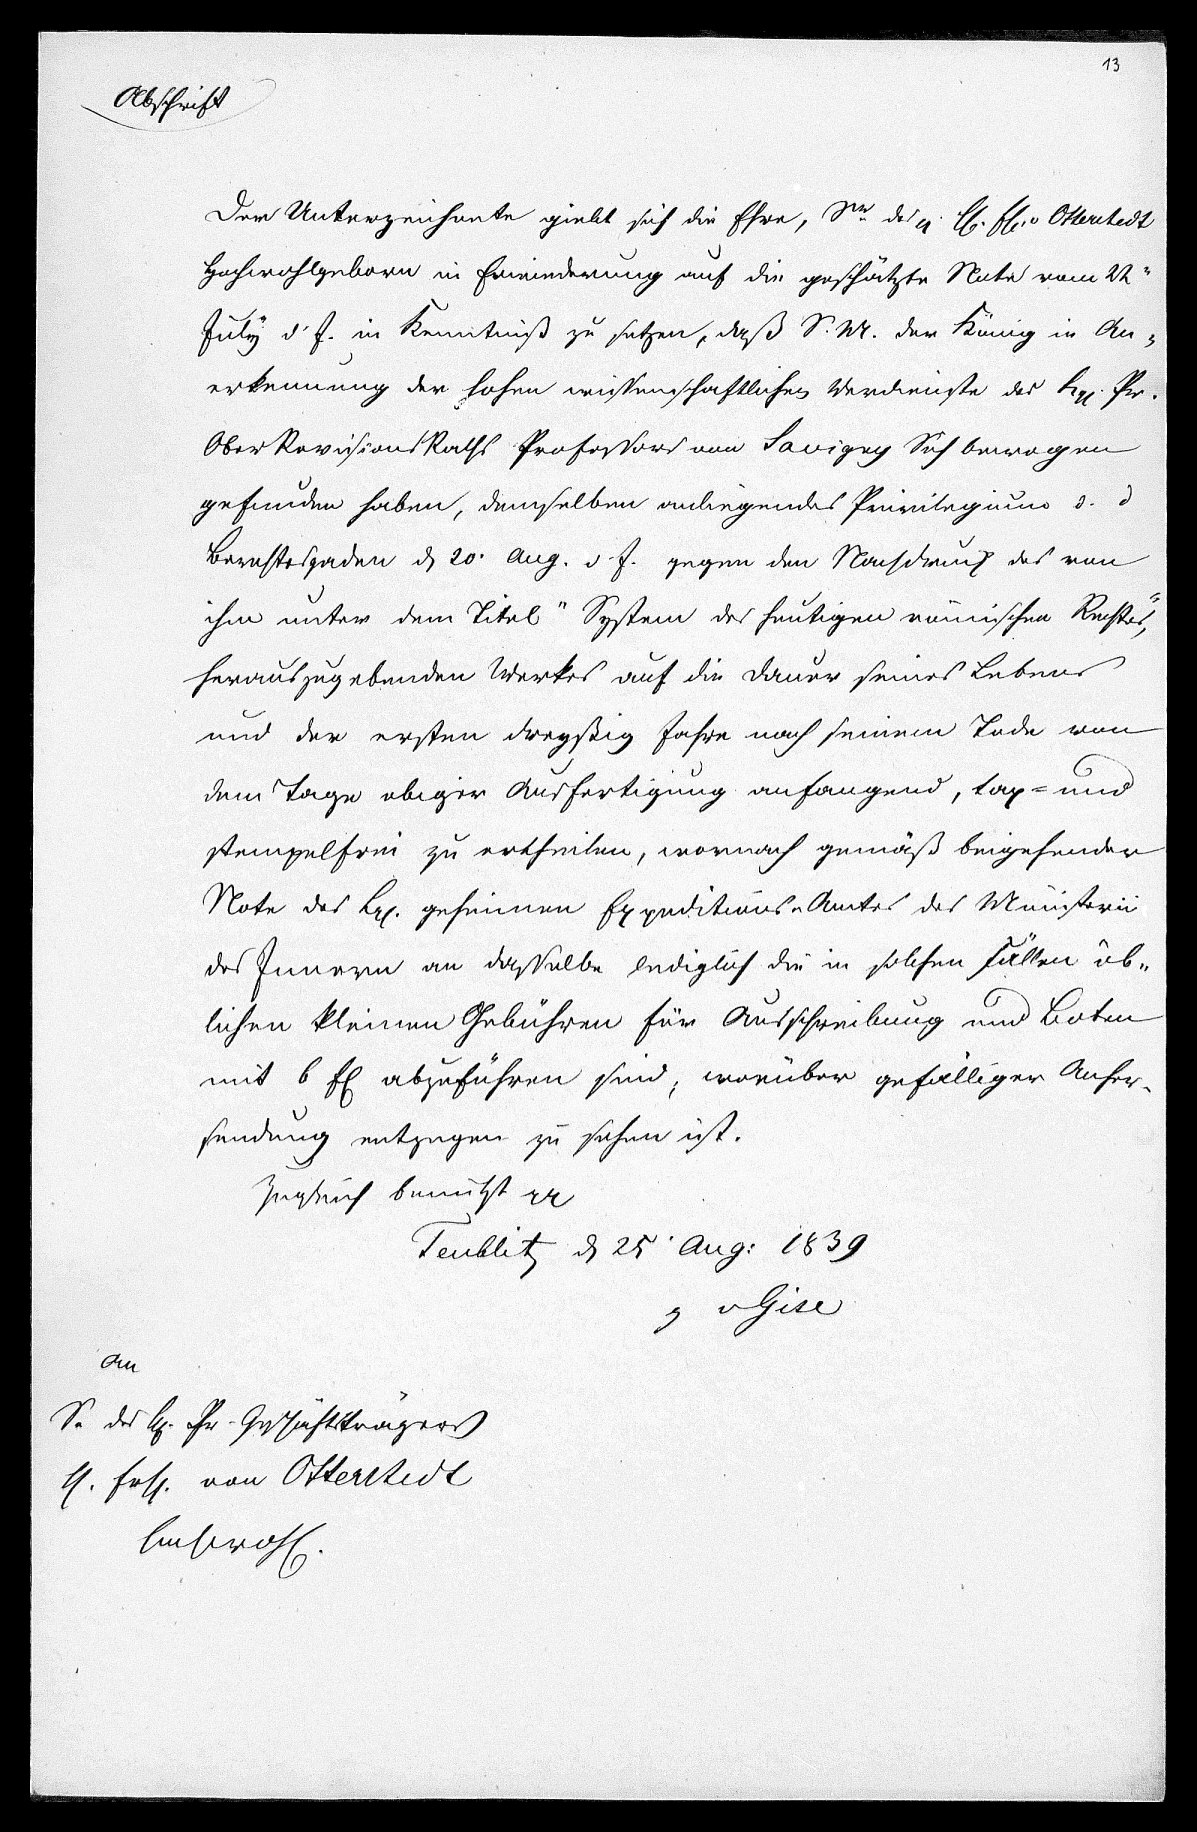 13
Abschrift
Der Unterzeichnete giebt sich die Ehre, Sr des p. H. Fh. v Otterstedt
Hochwohlgeborn in Erwiederung auf die geschätzte Note vom
July d. J. in Kenntniß zu setzen, daß S. M. der König in An„
erkennung der hohen wissenschaftlichen Verdienste des kgl. Pr.
OberRevisionsRaths Professors von Savigny Sich bewogen
gefunden haben, demselben anliegendes Privilegium d. d
Berchtesgaden d 20. Aug. d J. gegen den Nachdruck des von
ihm unter dem Titel "System des heutigen römischen Rechtes,"
herauszugebenden Werkes auf die Dauer seines Lebens
und der ersten dreyßig Jahre nach seinem Tode von
dem Tage obiger Ausfertigung anfangend, tax= und
stempelfrei zu ertheilen, wornach gemäß beigehender
Note des kgl. geheimen Expeditions-Amtes des Ministerii
des Innern an dasselbe lediglich die in solchen Fällen üb„
lichen kleinen Gebühren für Ausschreibung und Boten
mit 6 fl abzuführen sind, worüber gefälliger Anher-
sendung entgegen zu sehen ist.
Zugleich benutzt
Teublitz d 25. Aug: 1839
g v Gise
An
Sr des kgl. Pr. Geschäftsträgers
H. Frh. von Otterstedt
Hochwohl.